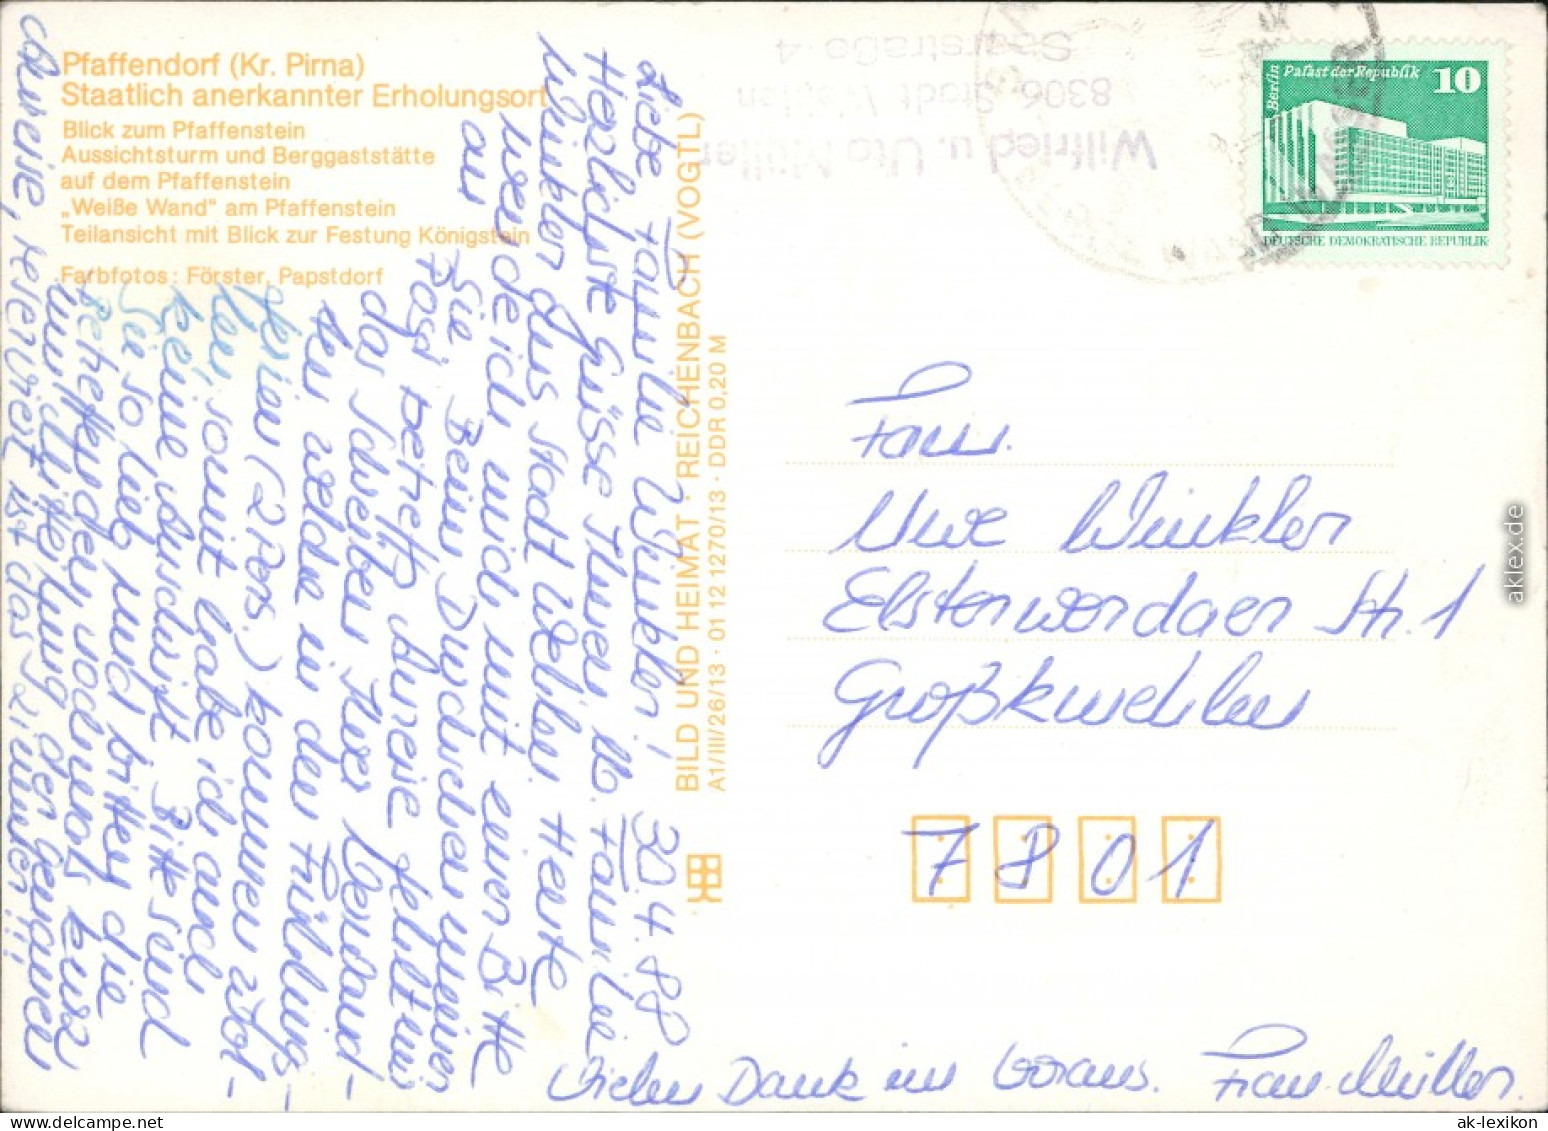 Pfaffendorf (Kr. Pirna)
Staatlich anerkannter Erholungsort
Blick zum Pfaffenstein
Aussichtsturm und Berggaststätte
auf dem Pfaffenstein
„Weiße Wand" am Pfaffenstein
Teilansicht mit Blick zur Festung Königstein
Farbfotos: Förster, Papstdorf
BILD UND HEIMAT · REICHENBACH (VOGTL)
A1/III/26/13 · 01 12 1270/13 · DDR 0,20 M
Wilfried u. Uta Müller
8306 Stadt Wehlen
4
Berlin Palast der Republik 10
DEUTSCHE DEMOKRATISCHE REPUBLIK
30.4.88
Liebe Familie Winkler!
Herzlichste Grüsse Ihnen u. Familie
Winkler aus Stadt Wehlen. Heute
wende ich mich mit einer Bitte
an Sie. Beim Durchsehen meiner
Post betreffs Anreise fehlt mir
das Schreiben Ihrer Bekannten
welche in den Frühlings-
ferien (2 Pers.) kommen wol-
len, somit habe ich auch
keine Anschrift. Bitte sind
Sie so lieb und bitten die
Betreffenden nochmals kurz
um Mitteilung der genauen
Anreise, reserviert ist das Zimmer!!!
Vielen Dank im Voraus. Frau Müller.
Fam.
Uwe Winkler
Elsterwerdaer Str. 1
Großkmehlen
7801
aklex.de
ak-lexikon